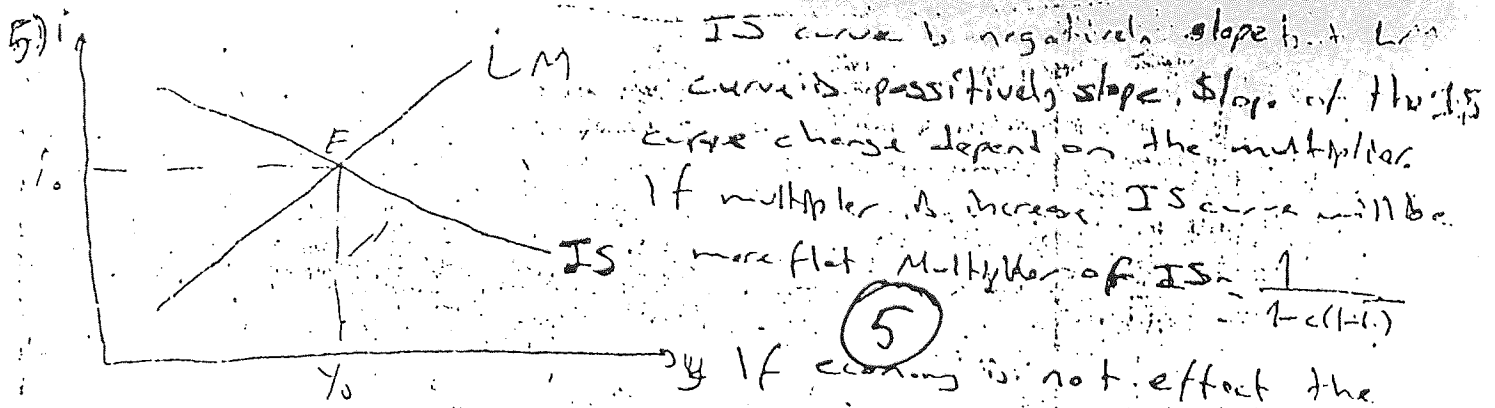 5) i
LM
E
i₀
IS
Y₀
y
IS curve is negatively slope but LM
curve is possitively slope. Slope of the IS
curve change depend on the multiplier.
If multipler is increase IS curve will be
more flat. Multiplier of IS = 1/(1-c(1-t))
5
If economy is not effect the